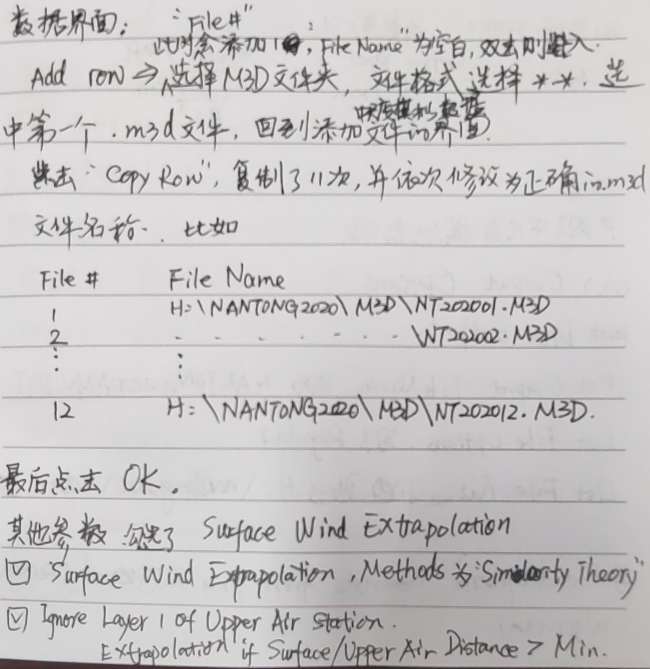 数据界面：
"File#"
此时会添加1  ，"File Name"为空白，双击则进入.
Add row → 选择M3D文件夹，文件格式选择 *.*. 选
中第一个.m3d文件，回到添加文件的界面
中尺度模拟数据
点击"Copy Row"，复制了11次，并依次修改为正确的.m3d
文件名称. 比如
File #  File Name
1  H:\NANTONG2020\M3D\NT202001.M3D
2  - - - - - - - \NT202002.M3D
⋮  ⋮
12  H:\NANTONG2020\M3D\NT202012.M3D.
最后点击 OK.
其他参数 勾选了 Surface Wind Extrapolation
☑ "Surface Wind Extrapolation, Methods 为"Similarity Theory"
☑ Ignore Layer 1 of Upper Air Station.
Extrapolation if Surface/Upper Air Distance > Min.